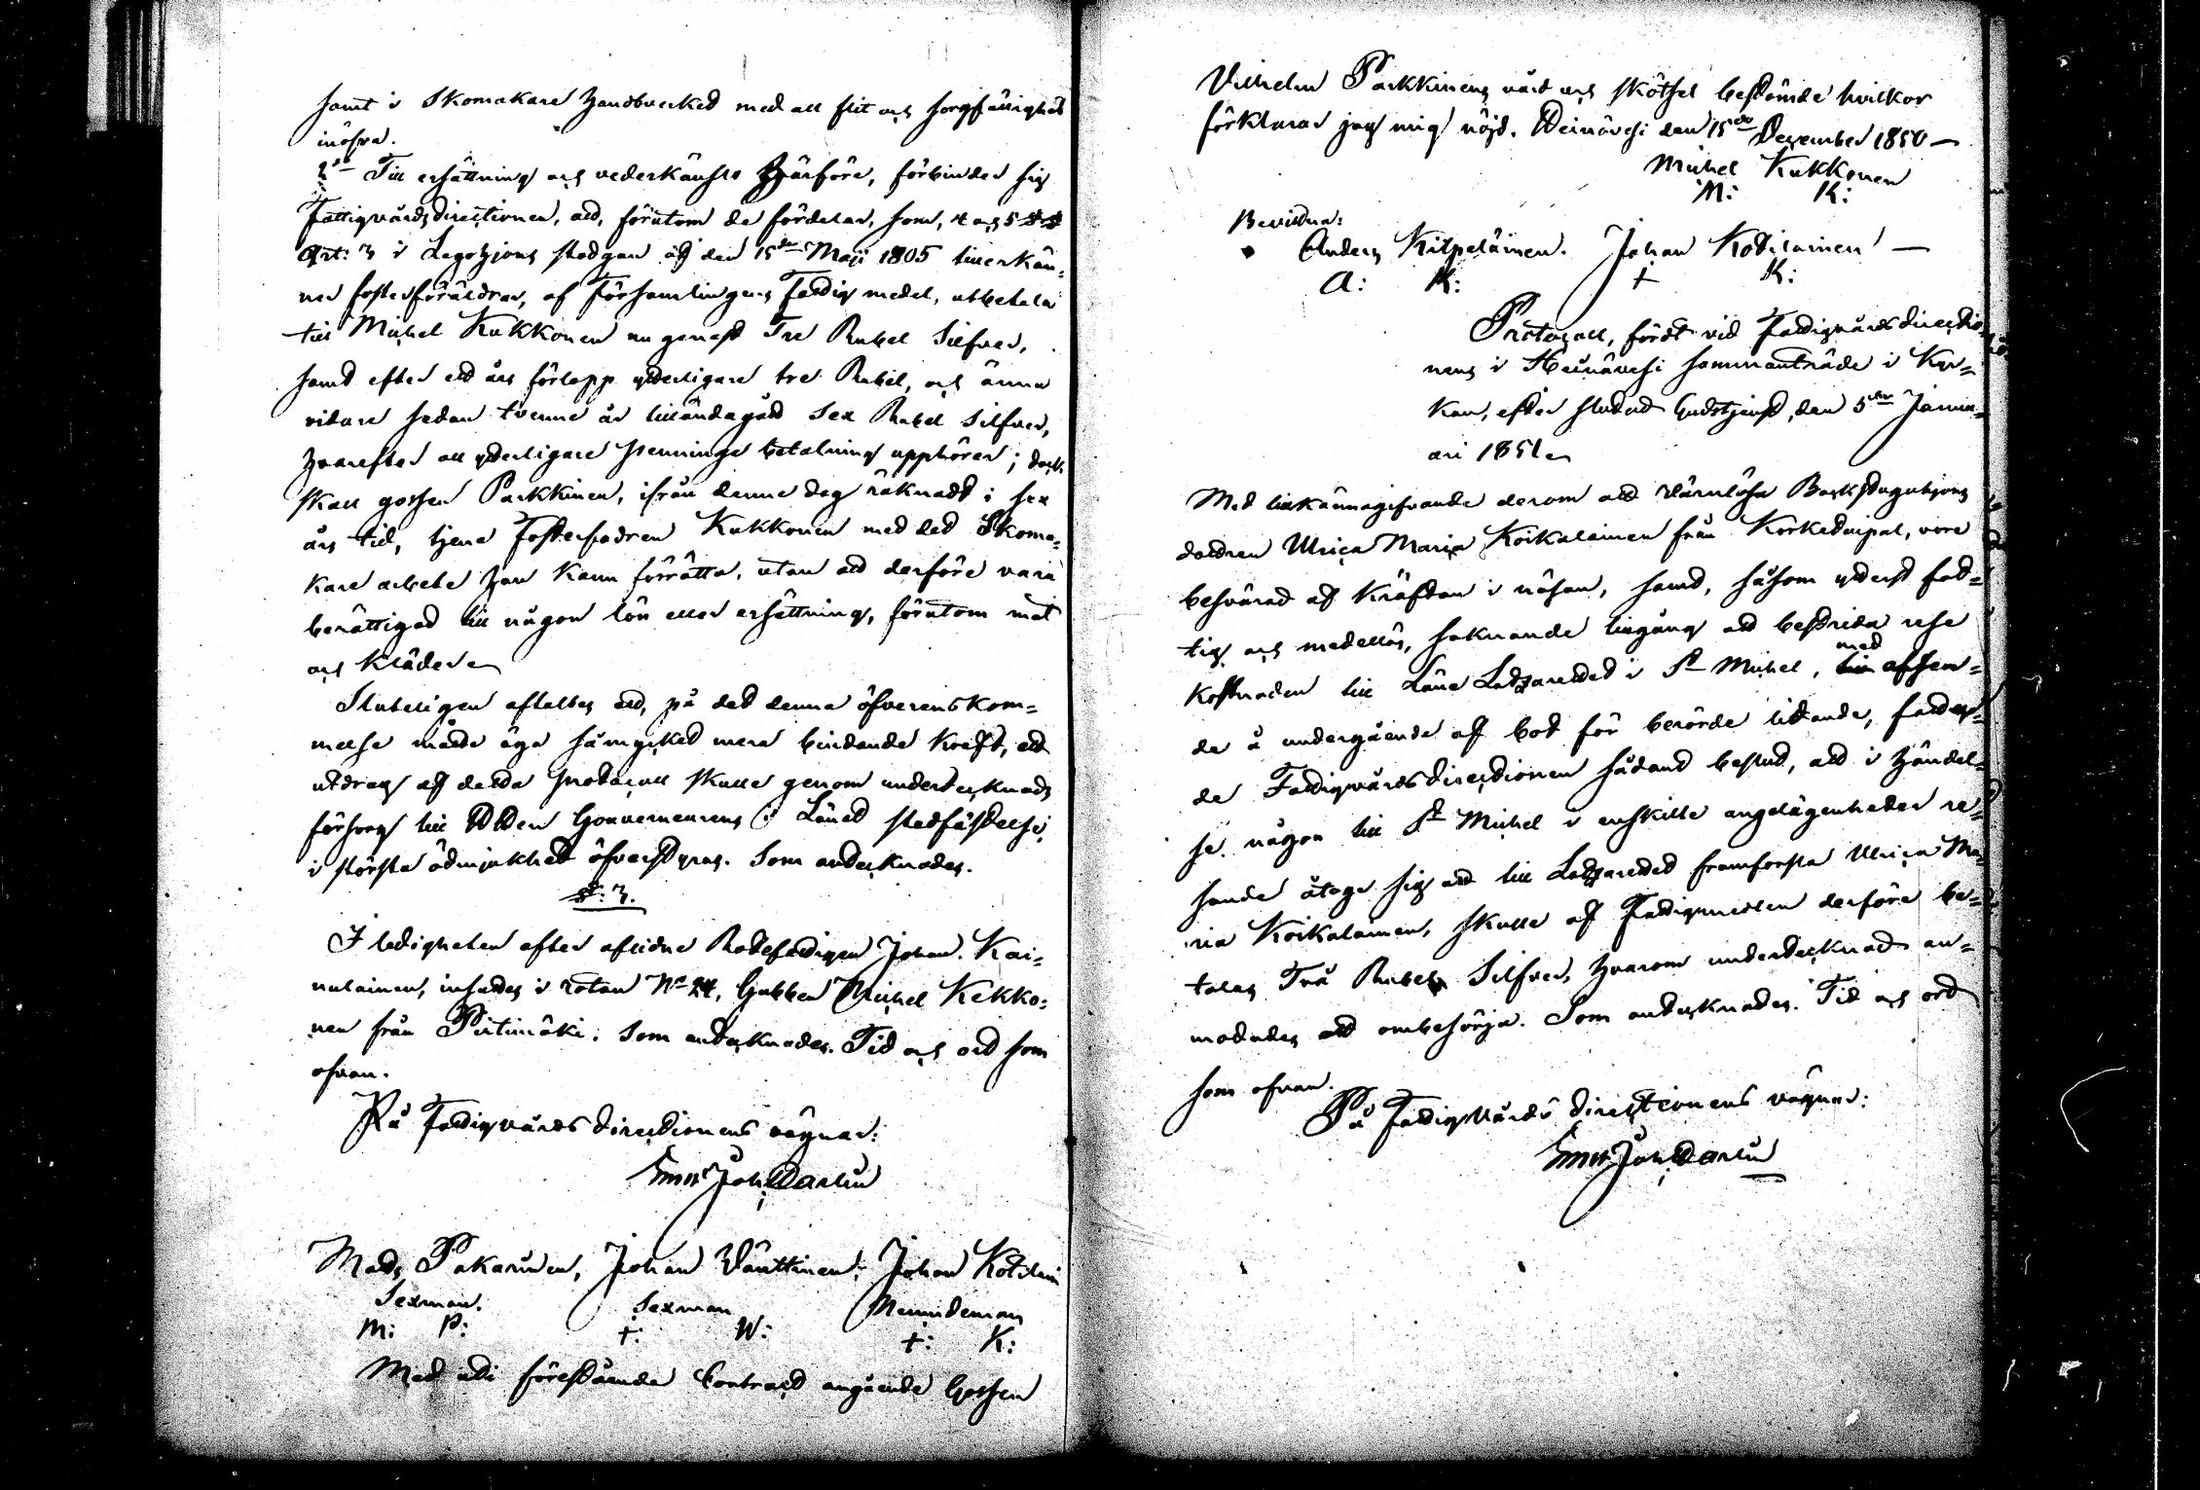 samt i Skomakare handtverket med all flit och sorgfällighet
inöfva.
2o Till ersättning och vederkänsla härföre, förbinder sig
Fattigvårdsdirectionen, att, förutom de fördelar, som, 4 och 5
Art: 3 i Legohjons stadgan af den 15de Maji 1805 tillerkän-
ner fosterföräldrar, af Församlingens Fattig medel, utbetala
till Michel Kukkonen nu genast Tre Rubel Silfver,
samt efter ett års förlopp ytterligare tre Rubel, och ännu
vidare sedan tvenne år tilländagått Sex Rubel Silfver,
hvarefter all ytterligare penninge betalning upphörer; dock
skall gossen Parkkinen, ifrån denna dag räknadt i sex
års tid, tjena Fosterfadren Kukkonen med det Skoma-
kare arbete han kann förrätta, utan att derföre vara
berättigad till någon lön eller ersättning, förutom mat
och kläder.
Sluteligen aftaltes att, på det denna öfverenskom-
melse måtte äga så mycket mera bindande kraft, ett
utdrag af detta protocoll skulle genom undertecknads
försorg till Herr Gouverneurens i Länet stadfästelse,
i största ödmjukhet öfverstyras. Som antecknades.
§: 3.
I ledigheten efter aflidne Rotefattigen Johan Kai-
nulainen, insattes i rotan No 24, Gubben Michel Kekko-
nen från Pirtimäki. Som antecknades. Tid och ort som
ofvan.
På Fattigvårds Directionens vägnar:
Joh.
Mats Pakarinen, Johan Väuttinen, Johan Kotilain
Sexman. Sexman Nämndeman
M: P: +: W: +: K:
Med uti förestående Contract angående Gossen
Vilhelm Parkkinens vård och skötsel bestämde vilkor
förklarar jag mig nöjd. Heinävesi den 15de December 1850 —
Michel Kukkonen
M: K:
Bevittna:
Anders Kilpeläinen. Johan Kotilainen —
A: K: + K:
Protocoll, fördt vid Fattigvårdsdirectio-
nens i Heinävesi sammanträde i Kyr-
kan, efter slutad Gudstjenst, den 5te Janu-
ari 1851.
Med tillkännagifvande derom att värnlösa Backstuguhjons
dottren Ulrica Maria Koikalainen från, vore
besvärad af kräftan i näsan, samt, såsom ytterst fat-
tig och medellös, saknande tillgång att bestrida rese
kostnaden till Läne Lazarettet i St Michel, med afseen-
de å undergående af bot för berörde lidande, fattar-
de Fattigvårdsdirectionen sådant beslut, att i händel-
se någon till St Michel i enskilte angelägenheter re-
sande åtoge sig att till Lazarettet framforsla Ulrica Ma-
ria Koikalainen, skulle af Fattigmedlen derföre be-
talas Två Rubel Silfver, hvarom undertecknad an-
modades att ombesörja. Som antecknades. Tid och ort
som ofvan.
På Fattigvårds Directionens vägnar:
Joh.